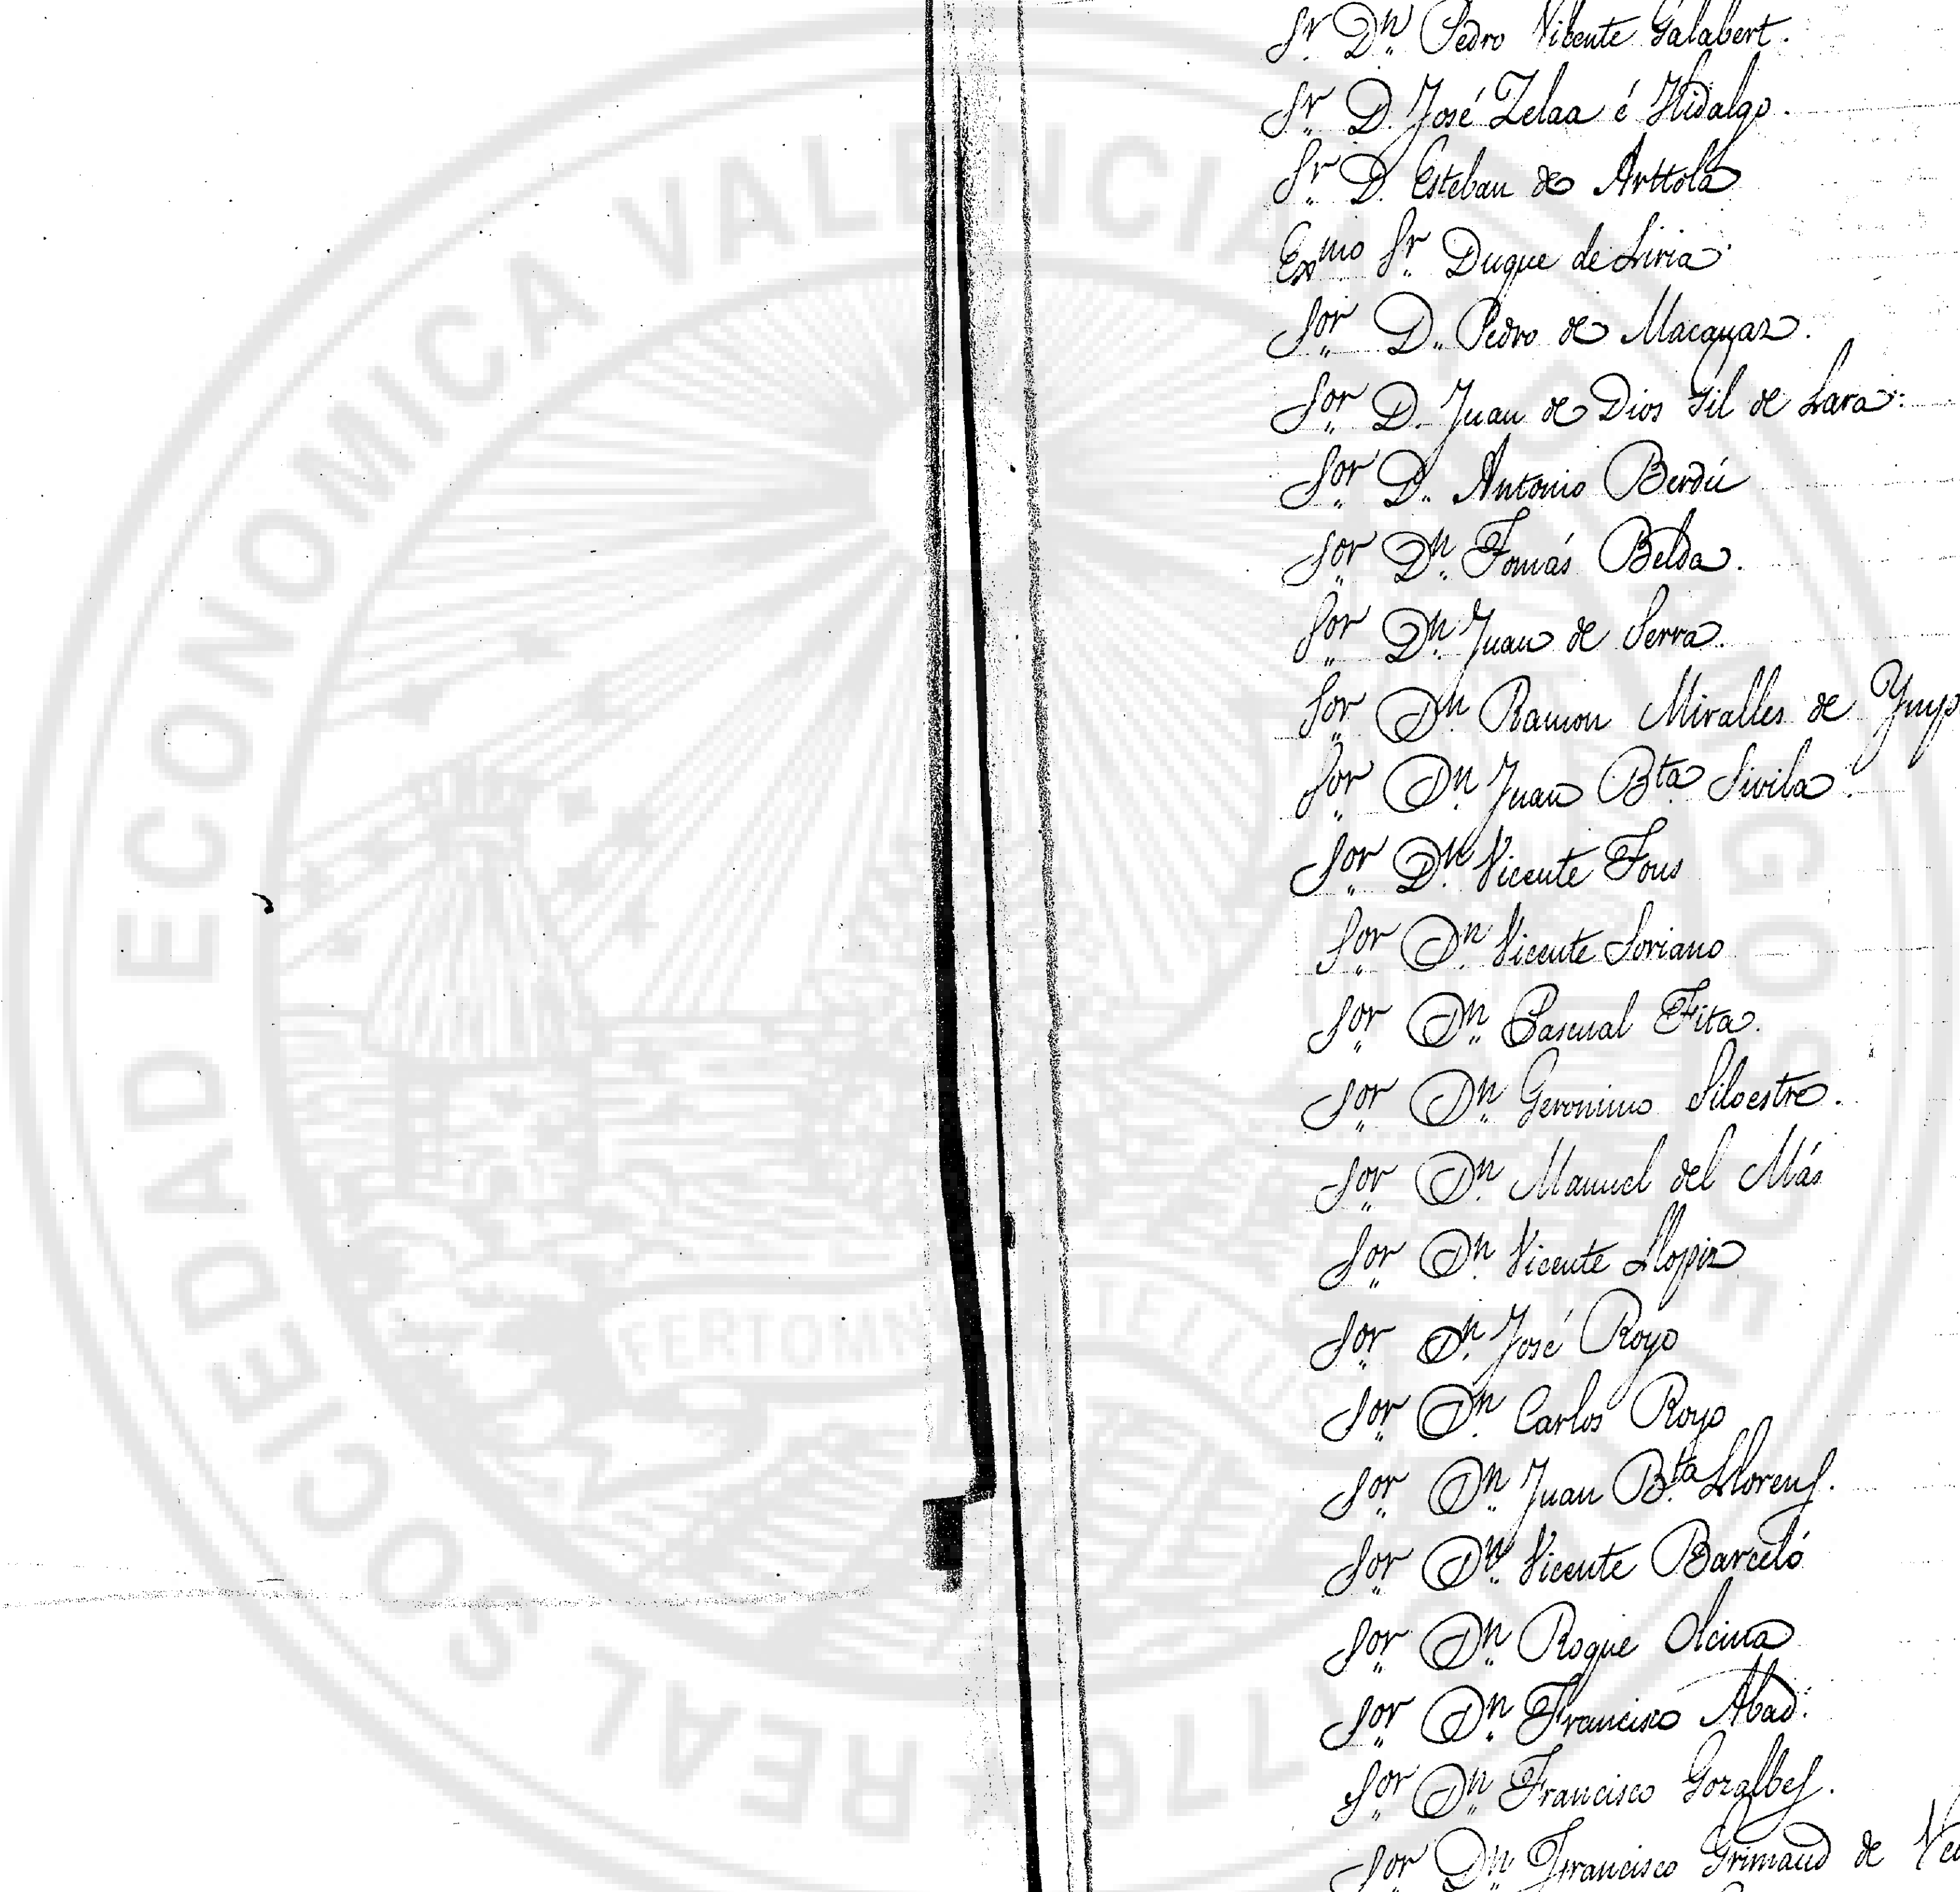 Sr. Dn. Pedro Vicente Galabert.
Sr. D. José Zelaa é Hidalgo.
Sr. D. Esteban de Arttola
Exmo Sr. Duque de Liria
Sor. D. Pedro de Macanaz.
Sor. D. Juan de Dios Gil de Lara.
Sor. D. Antonio Berdú
Sor. Dn. Tomás Belda.
Sor. Dn. Juan de Serra.
Sor. Dn. Ramon Miralles de
Sor. Dn. Juan Bta. Sivila.
Sor. Dn. Vicente Fous
Sor. Dn. Vicente Soriano
Sor. Dn. Pascual Fita.
Sor. Dn. Geronimo Silvestre.
Sor. Dn. Manuel del Más
Sor. Dn. Vicente Llopiz
Sor. Dn. José Royo
Sor. Dn. Carlos Royo
Sor. Dn. Juan Bta. Llorens.
Sor. Dn. Vicente Barceló
Sor. Dn. Roque Olcina
Sor. Dn. Francisco Abad.
Sor. Dn. Francisco Gozalbes.
Sor. Dn. Francisco Grimaud de
REAL SOCIEDAD ECONOMICA VALENCIA
1776